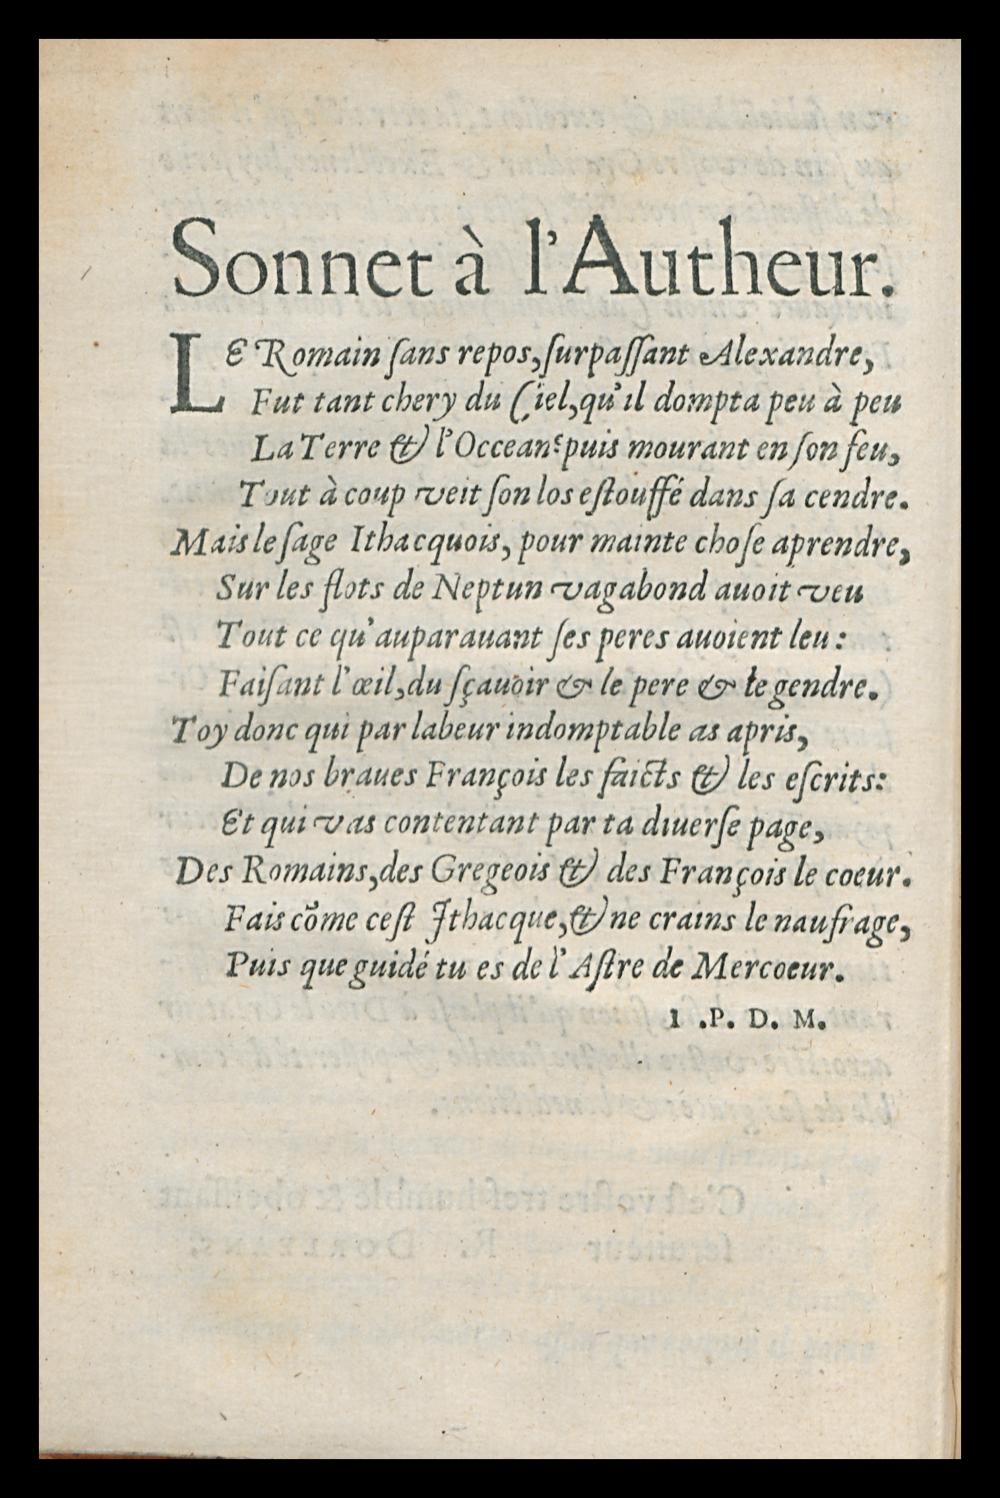 Sonnet à l'Autheur.
LE Romain ſans repos, ſurpaſſant Alexandre,
Fut tant chery du Ciel, qu'il dompta peu à peu
La Terre & l'Occean: puis mourant en ſon feu,
Tout à coup veit ſon los eſtouffé dans ſa cendre.
Mais le ſage Ithacquois, pour mainte choſe aprendre,
Sur les flots de Neptun vagabond auoit veu
Tout ce qu'auparauant ſes peres auoient leu:
Faiſant l'œil, du ſçauoir & le pere & le gendre.
Toy donc qui par labeur indomptable as apris,
De nos braues François les faicts & les eſcrits:
Et qui vas contentant par ta diuerſe page,
Des Romains, des Gregeois & des François le coeur.
Fais cõme ceſt Ithacque, & ne crains le naufrage,
Puis que guidé tu es de l'Aſtre de Mercoeur.
I .P. D. M.